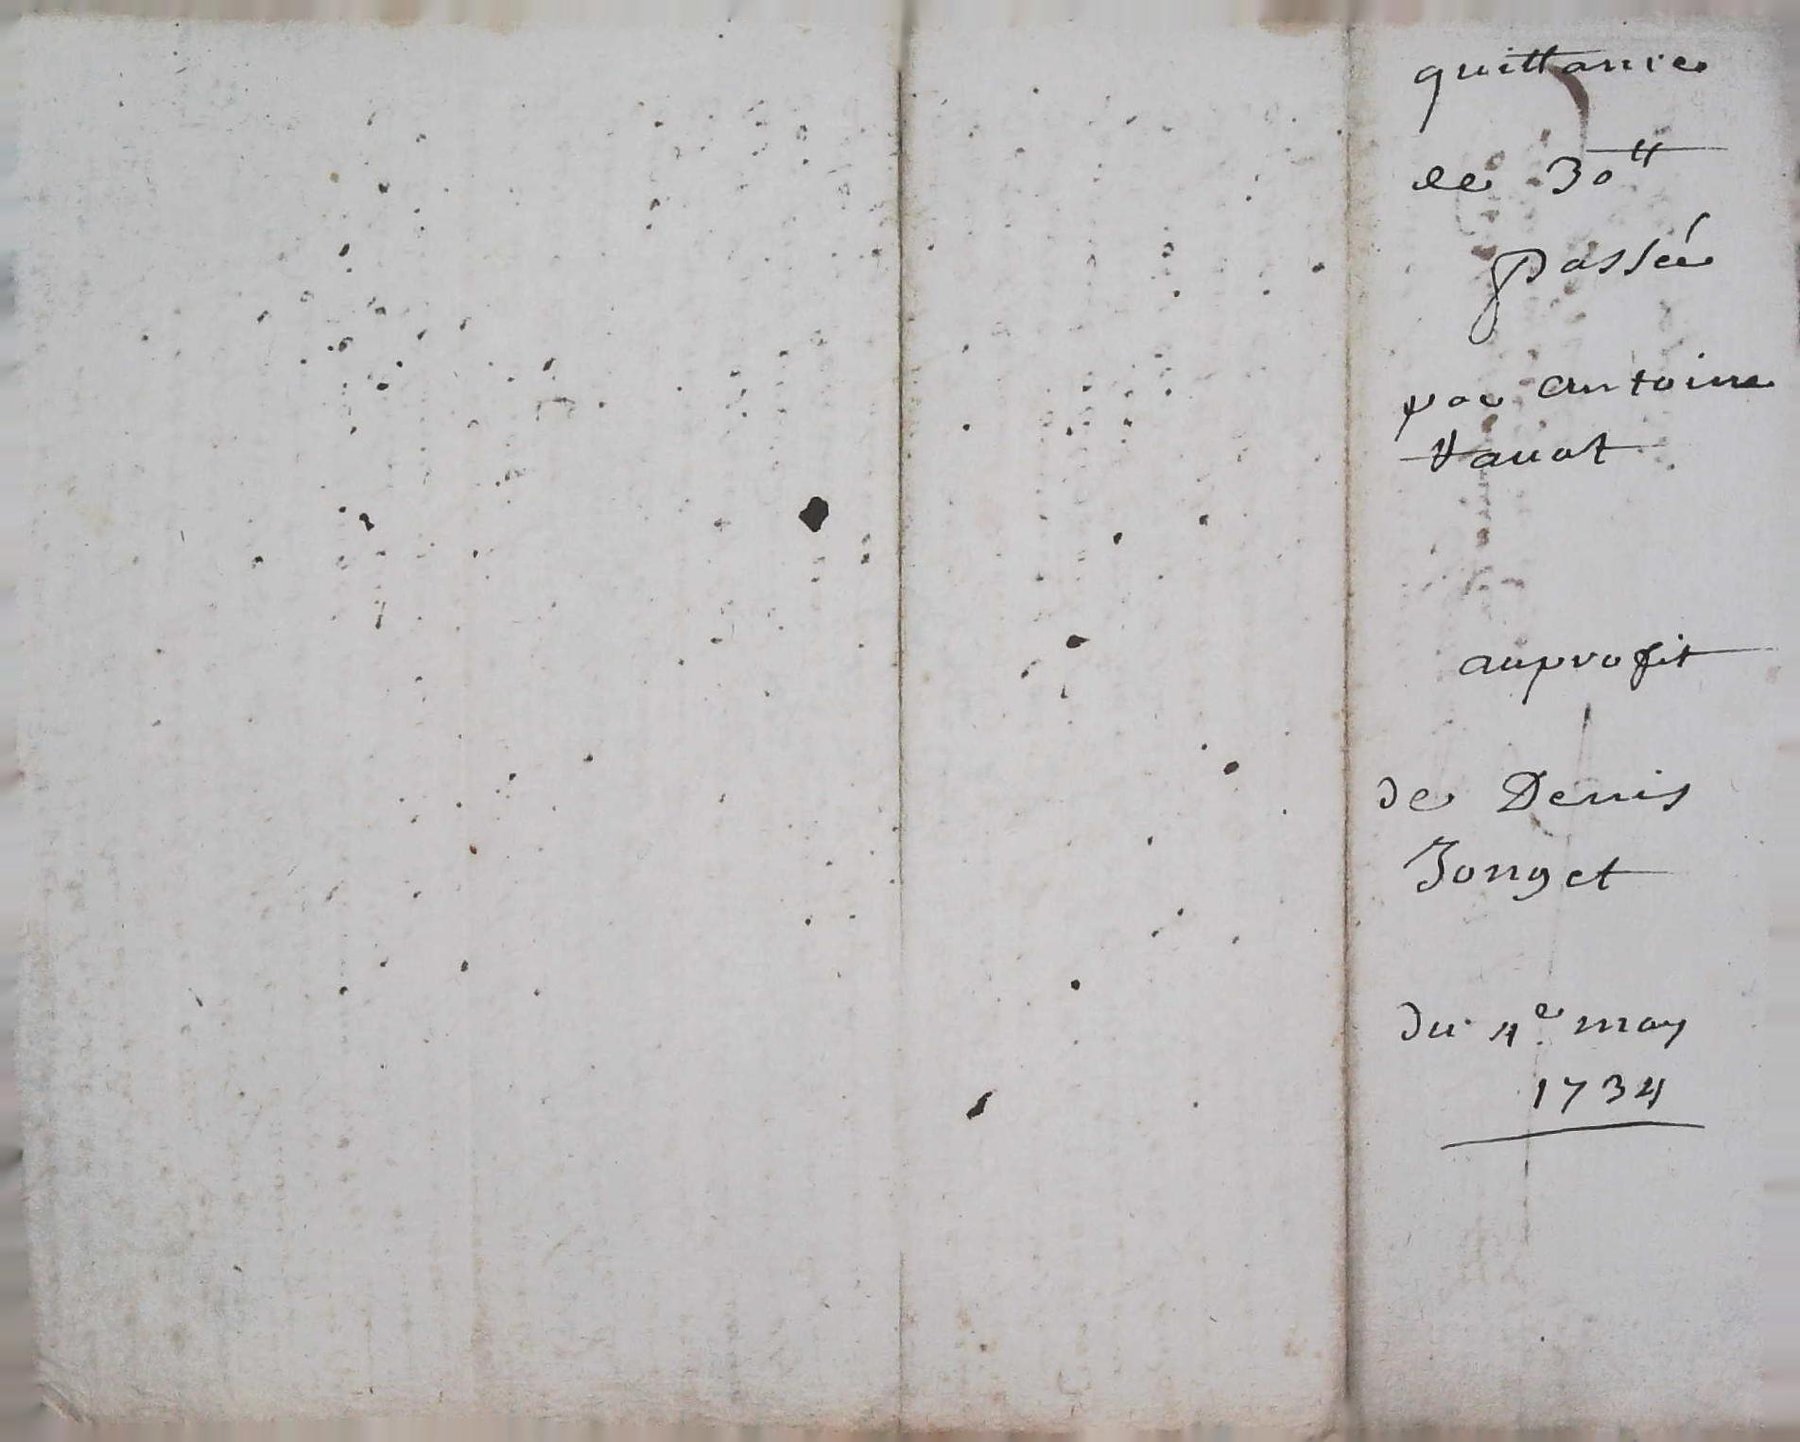 quittance
de 30tt
passée
par antoine
Vauat
auprofit
de Denis
Jonget
du 4e may
1734